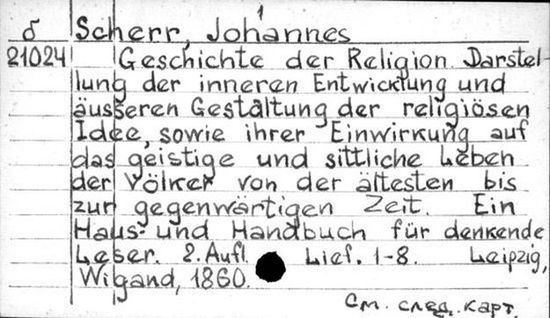 1
δ Scherr, Johannes
21024 Geschichte der Religion Darstel-
lung der inneren Entwicklung und
äusseren Gestaltung der religiösen
Idee, sowie ihrer Einwirkung auf
das geistige und sittliche Leben
der Völker von der ältesten bis
zur gegenwärtigen Zeit. Ein
Haus- und Handbuch für denkende
Leser. 2. Aufl. Lief. 1-8. Leipzig,
Wigand, 1860.
См. след. карт.